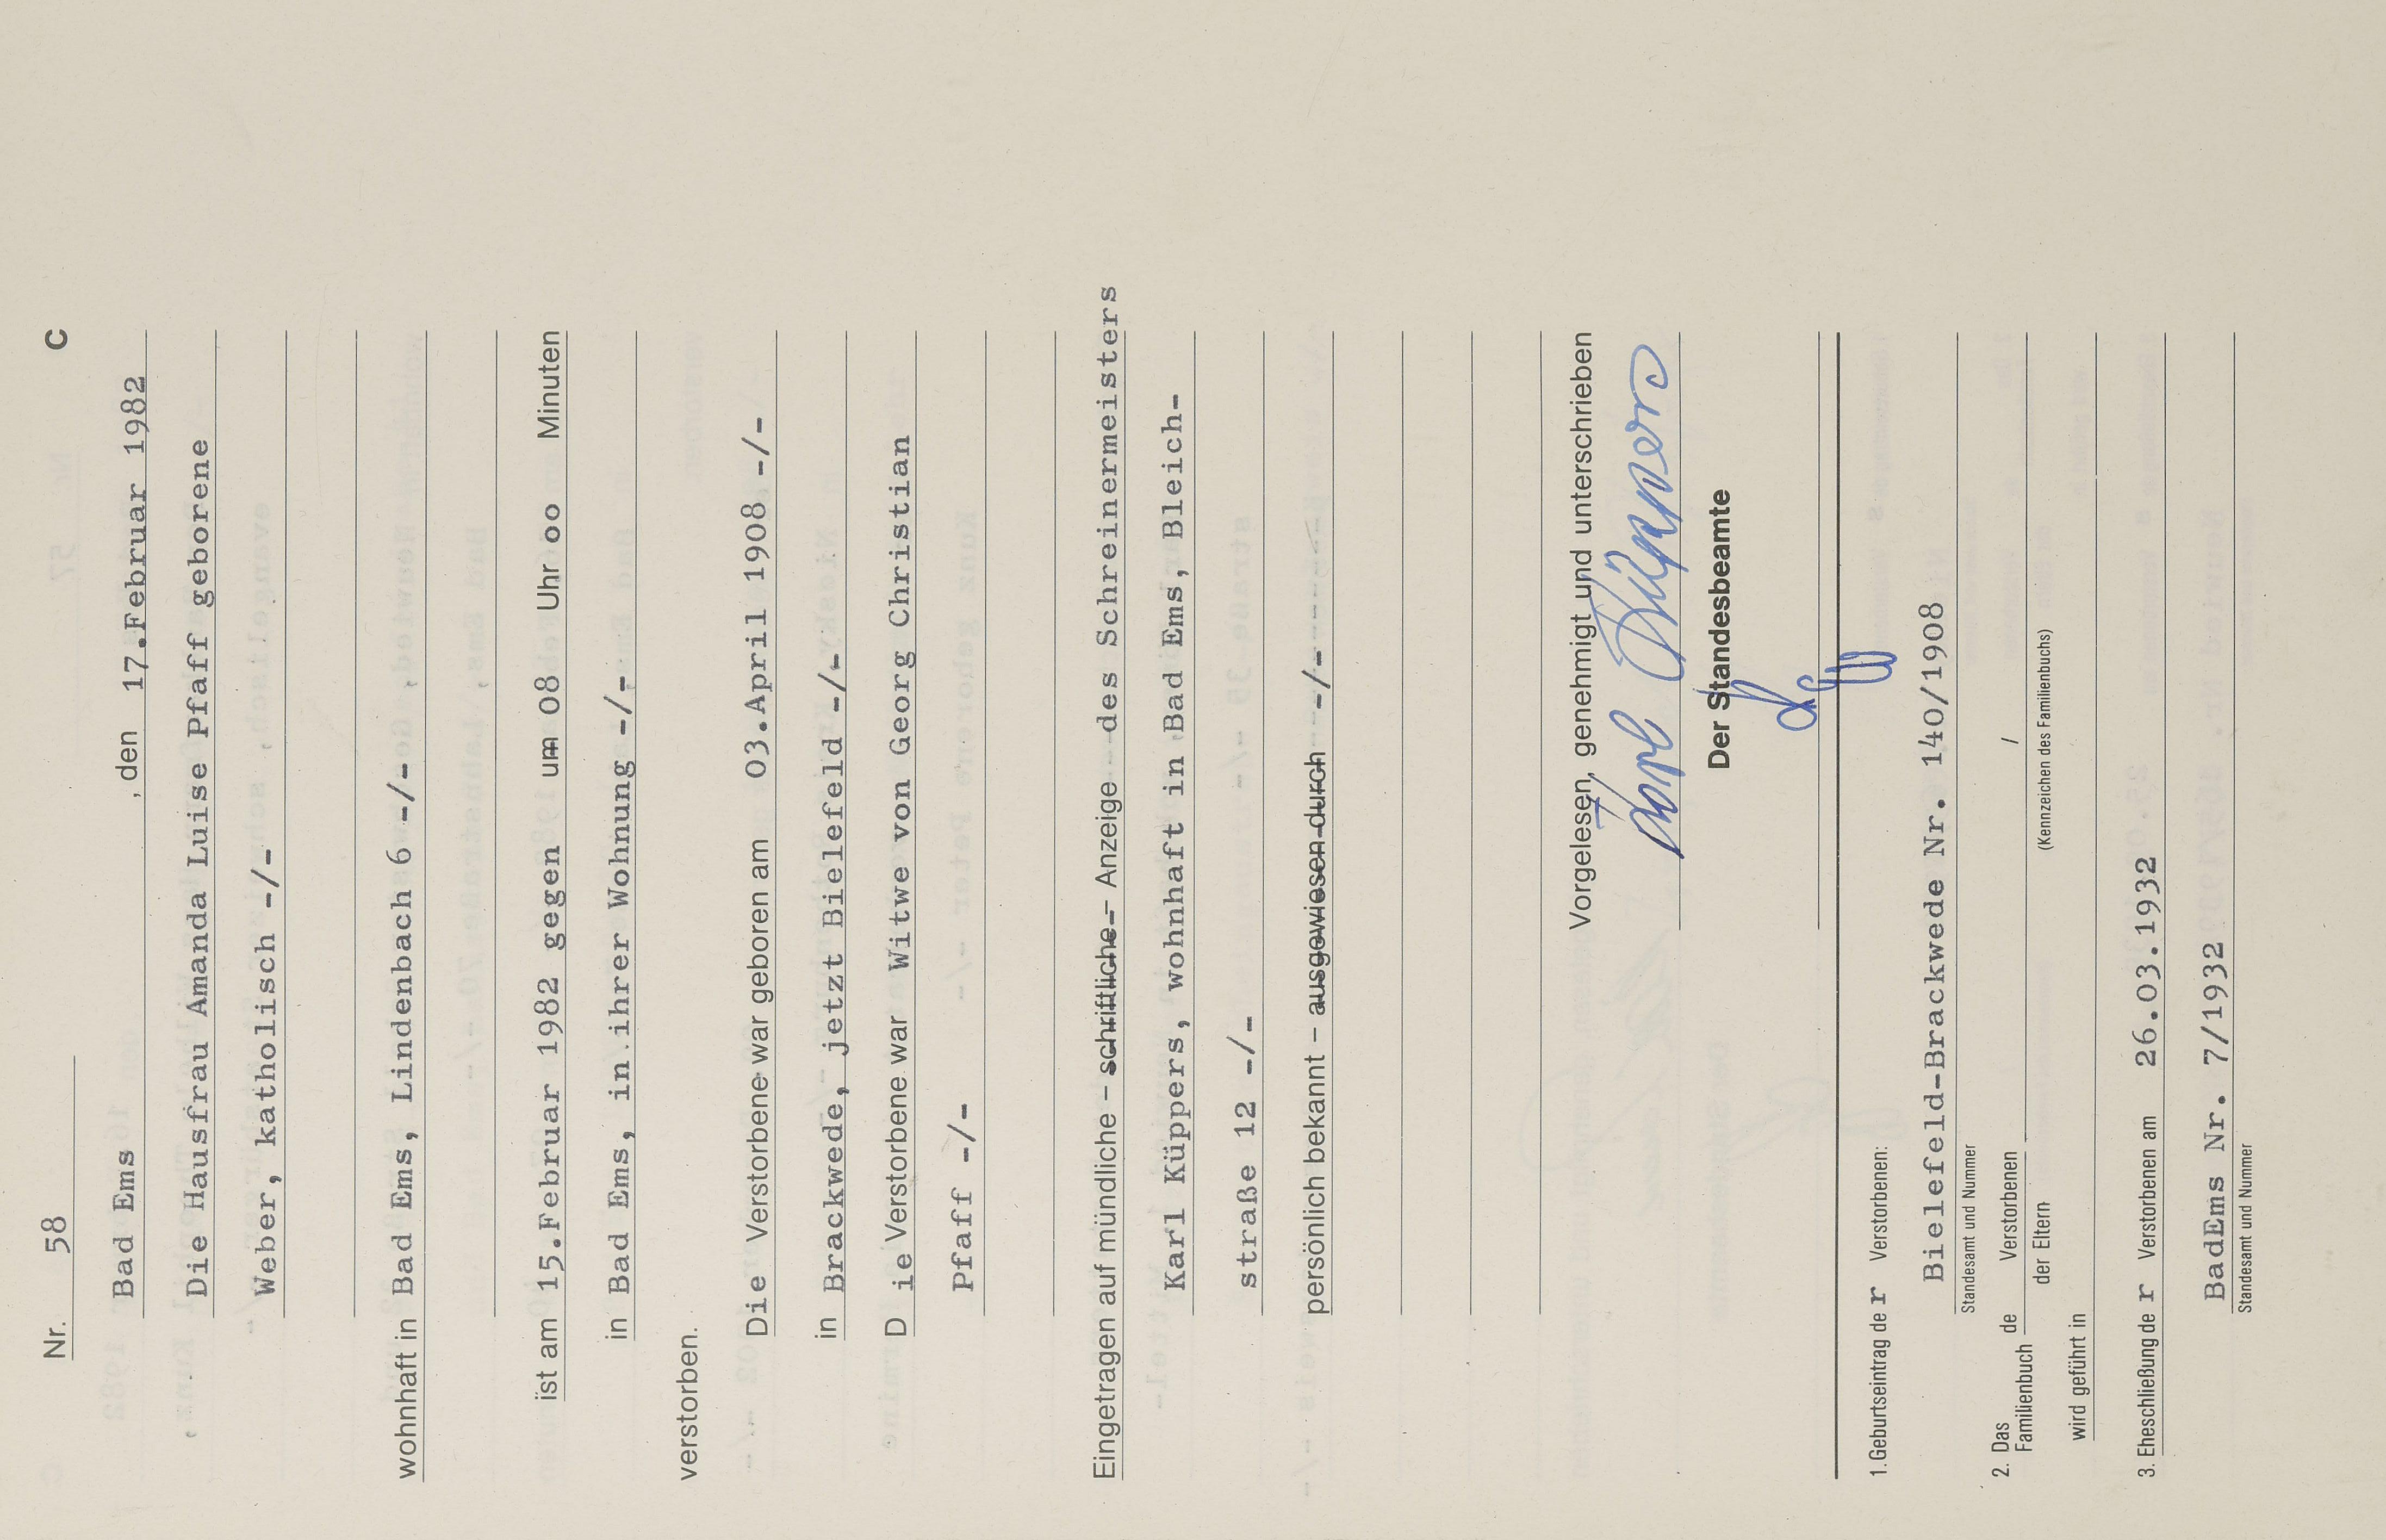 Nr. 58 C
Bad Ems , den 17.Februar 1982
Die Hausfrau Amanda Luise Pfaff geborene
Weber, katholisch -/-
wohnhaft in Bad Ems, Lindenbach 6 -/-
ist am 15.Februar 1982 gegen um 08 Uhr oo Minuten
in Bad Ems, in ihrer Wohnung -/-
verstorben.
Die Verstorbene war geboren am 03.April 1908 -/-
in Brackwede, jetzt Bielefeld -/-
Die Verstorbene war Witwe von Georg Christian
Pfaff -/-
Eingetragen auf mündliche – schriftliche – Anzeige des Schreinermeisters
Karl Küppers, wohnhaft in Bad Ems, Bleich-
straße 12 -/-
persönlich bekannt – ausgewiesen durch -/-
Vorgelesen, genehmigt und unterschrieben
Karl Küppers
Der Standesbeamte
1. Geburtseintrag der Verstorbenen:
Bielefeld-Brackwede Nr. 140/1908
Standesamt und Nummer
2. Das Familienbuch de Verstorbenen /
der Eltern (Kennzeichen des Familienbuchs)
wird geführt in
3. Eheschließung der Verstorbenen am 26.03.1932
BadEms Nr. 7/1932
Standesamt und Nummer